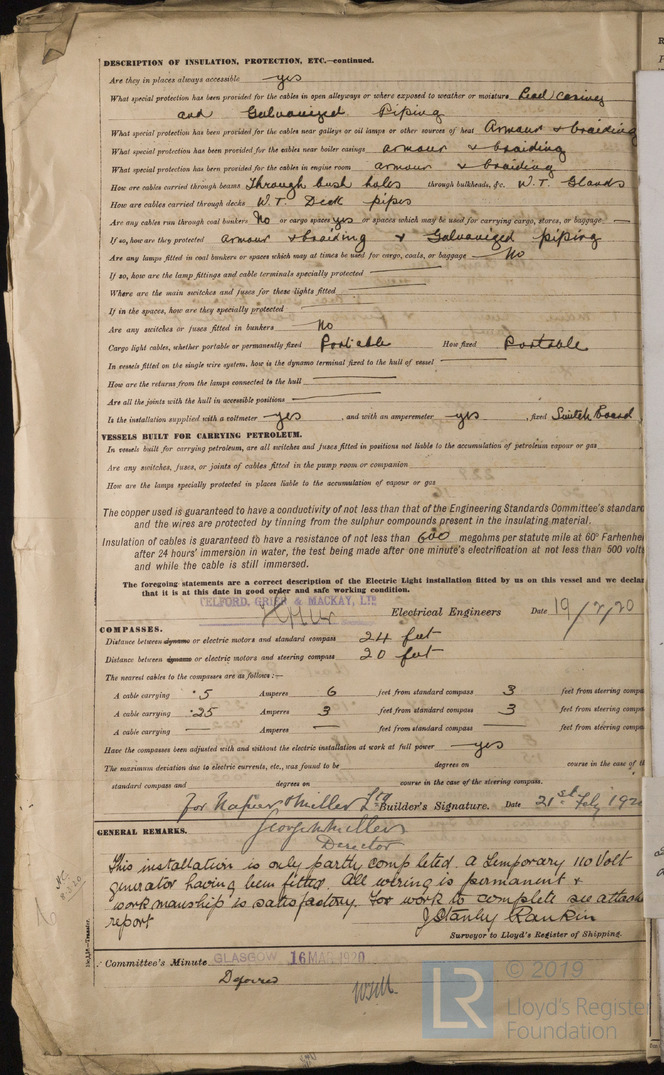 DESCRIPTION OF INSULATION, PROTECTION, ETC.—continued.
Are they in places always accessible yes
What special protection has been provided for the cables in open alleyways or where exposed to weather or moisture Lead casing
and Galvanized Piping
What special protection has been provided for the cables near galleys or oil lamps or other sources of heat Armour & braiding
What special protection has been provided for the cables near boiler casings armour & braiding
What special protection has been provided for the cables in engine room armour & braiding
How are cables carried through beams Through bush holes through bulkheads, &c. W.T. Glands
How are cables carried through decks W.T. Deck pipes
Are any cables run through coal bunkers No or cargo spaces yes or spaces which may be used for carrying cargo, stores, or baggage —
If so, how are they protected armour & braiding & Galvanized piping
Are any lamps fitted in coal bunkers or spaces which may at times be used for cargo, coals, or baggage No
If so, how are the lamp fittings and cable terminals specially protected —
Where are the main switches and fuses for these lights fitted —
If in the spaces, how are they specially protected —
Are any switches or fuses fitted in bunkers No
Cargo light cables, whether portable or permanently fixed Portable How fixed Portable
In vessels fitted on the single wire system, how is the dynamo terminal fixed to the hull of vessel —
How are the returns from the lamps connected to the hull —
Are all the joints with the hull in accessible positions —
Is the installation supplied with a voltmeter yes , and with an amperemeter yes , fixed Switch Board
VESSELS BUILT FOR CARRYING PETROLEUM.
In vessels built for carrying petroleum, are all switches and fuses fitted in positions not liable to the accumulation of petroleum vapour or gas
Are any switches, fuses, or joints of cables fitted in the pump room or companion
How are the lamps specially protected in places liable to the accumulation of vapour or gas
The copper used is guaranteed to have a conductivity of not less than that of the Engineering Standards Committee's standard
and the wires are protected by tinning from the sulphur compounds present in the insulating material.
Insulation of cables is guaranteed to have a resistance of not less than 600 megohms per statute mile at 60° Farhenhei
after 24 hours' immersion in water, the test being made after one minute's electrification at not less than 500 volts
and while the cable is still immersed.
The foregoing statements are a correct description of the Electric Light installation fitted by us on this vessel and we declar
that it is at this date in good order and safe working condition.
TELFORD, GRIER & MACKAY, LTD
Electrical Engineers Date 19/2/20
COMPASSES.
Distance between dynamo or electric motors and standard compass 24 feet
Distance between dynamo or electric motors and steering compass 20 feet
The nearest cables to the compasses are as follows:—
A cable carrying .5 Amperes 6 feet from standard compass 3 feet from steering compa
A cable carrying .25 Amperes 3 feet from standard compass 3 feet from steering compa
A cable carrying — Amperes — feet from standard compass — feet from steering compa
Have the compasses been adjusted with and without the electric installation at work at full power yes
The maximum deviation due to electric currents, etc., was found to be degrees on course in the case of th
standard compass and degrees on course in the case of the steering compass.
for Napier & Miller Ltd Builder's Signature. Date 21st Feby 192
George Miller
Director
GENERAL REMARKS.
This installation is only partly completed. a temporary 110 Volt
generator having been fitted. All wiring is permanent &
workmanship is satisfactory. For work to complete see attach
report J Stanley Rankin
Surveyor to Lloyd's Register of Shipping.
Committee's Minute GLASGOW 16 MAR. 1920
Deferred
LR © 2019
Lloyd's Register
Foundation